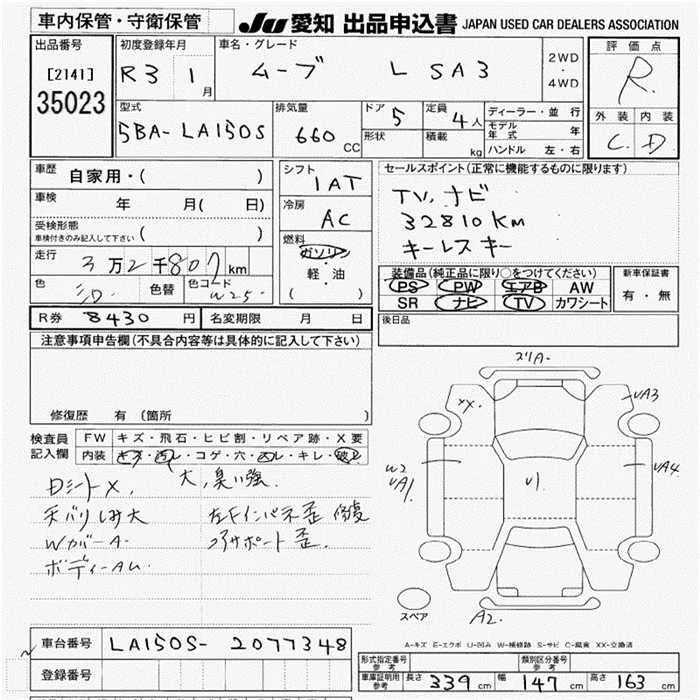 車内保管・守衛保管
JU 愛知 出品申込書 JAPAN USED CAR DEALERS ASSOCIATION
出品番号
[2141]
35023
初度登録年月
R3 1月
車名・グレード
ムーブ L SA3
2WD
・
4WD
評価点
R
外装 内装
C D
型式
5BA-LA150S
排気量
660 CC
ドア 5
形状
定員 4人
積載 kg
ディーラー・並行
モデル年式 年
ハンドル 左・右
車歴
自家用・( )
車検
年 月( 日)
受検形態
車検付きのみ記入して下さい ( )
走行
3万2千807km
色
シロ
色替
色コード
W25
シフト
1AT
冷房
AC
燃料
ガソリン
・
軽・油
( )
セールスポイント(正常に機能するものに限ります)
TV,ナビ
32810Km
キーレスキー
装備品(純正品に限り○をつけてください)
PS PW エアB AW
SR ナビ TV カワシート
新車保証書
有・無
R券 8430 円
名変期限 月 日
後日品
注意事項申告欄(不具合内容等は具体的に記入して下さい)
修復歴 有(箇所 )
検査員
記入欄
FW キズ・飛石・ヒビ割・リペア跡・X要
内装 キズ・汚レ・コゲ・穴・凹レ・キレ・破レ
大,臭い強.
DシートX,
天バリしみ大
左Fインパネ歪 修復
WカバーA-
コアサポート歪.
ボディーAU
スリA-
XX
UA3
W2
UA1
U1
UA4
スペア
A2
A-キズ E-エクボ U-凹み W-補修跡 S-サビ C-腐食 XX-交換済
車台番号 LA150S-2077348
登録番号
形式指定番号
参考
類別区分番号
参考
車庫証明用
参考
長さ 339 cm 幅 147 cm 高さ 163 cm